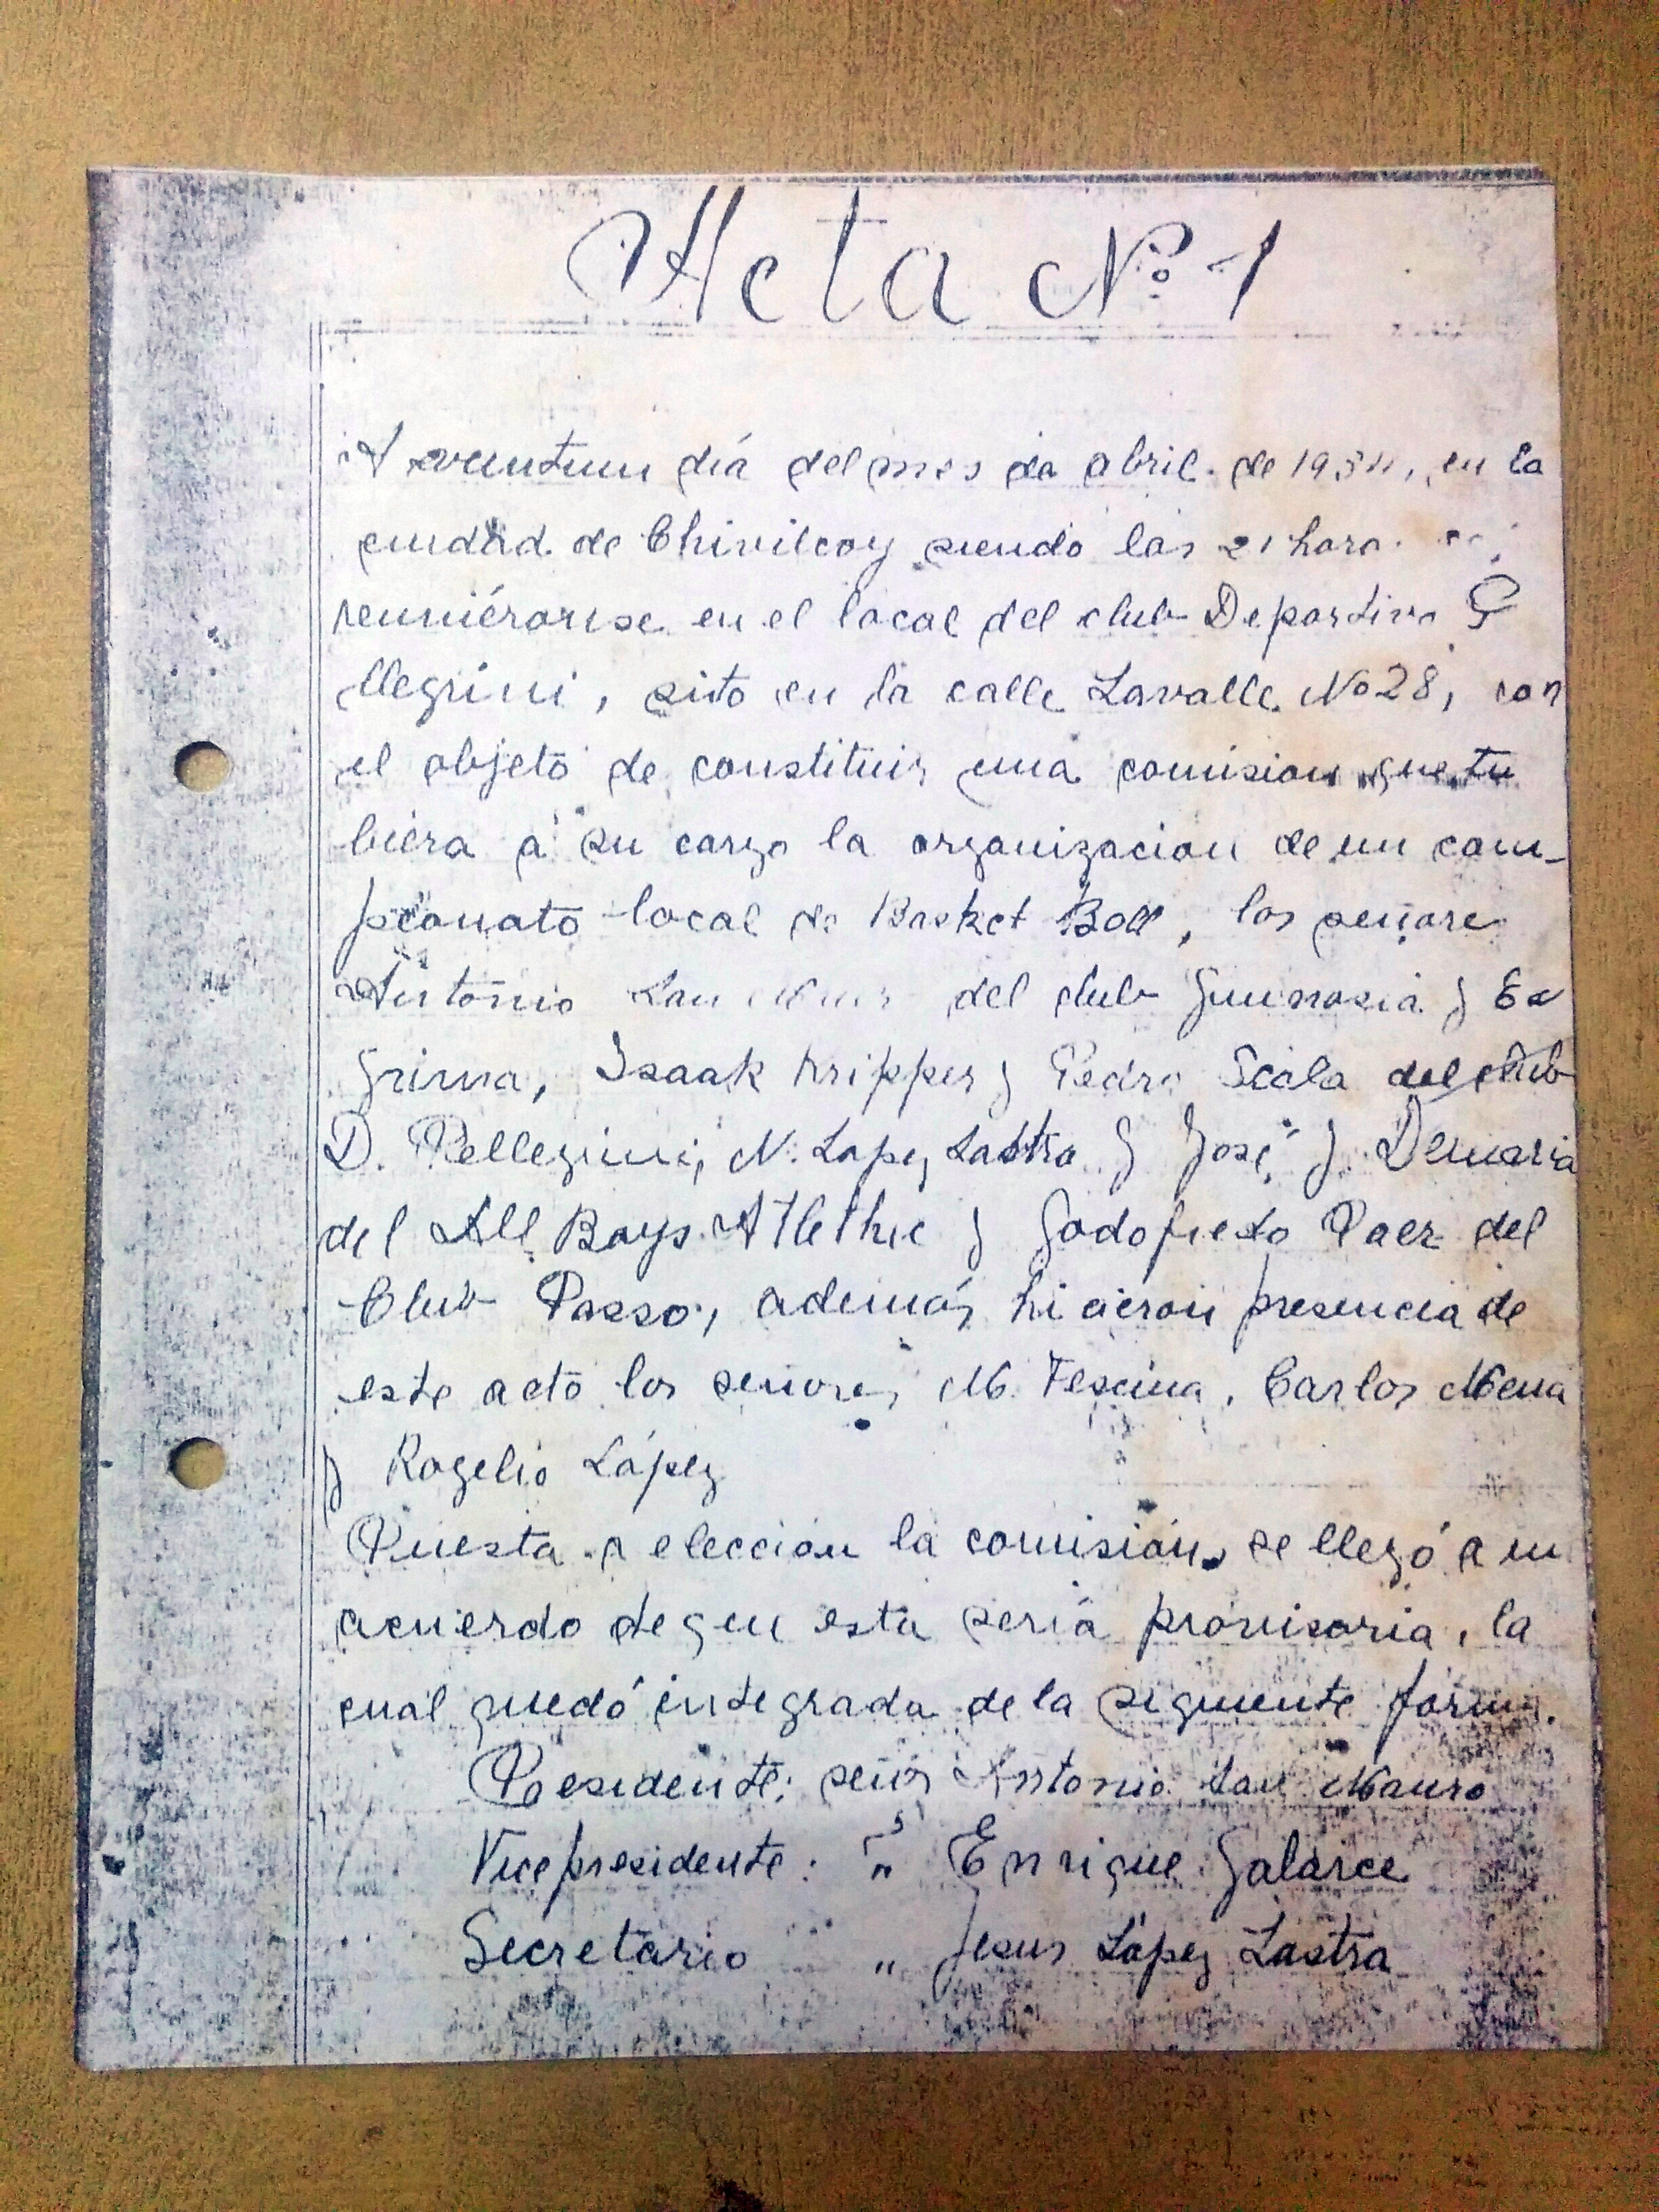 Acta Nº 1
A veintiun dia del mes de abril de en la
ciudad de Chivilcoy siendo las 21 hora
reuniéronse en el local del club Deportivo Pe
llegrini, sito en la calle Lavalle No 28, con
el objeto de constituir una comision que tu
biera a su cargo la organizacion de un cam-
peonato local de Basket Boll, los señores
Antonio San Mauro del club Gimnasia y Es
grima, Isaak Kripper y Pedro Scala del club
D. Pellegrini, N. Lopez Lastra y José J. Demaria
del All Boys Atlethic y Godofredo Paez del
Club Passo, además hicieron presencia de
este acto los señores M. Fescina, Carlos Mena
y Rogelio López
Puesta a elección la comisión, se llegó a un
acuerdo de que esta seria provisoria, la
cual quedó integrada de la siguiente forma.
Presidente: señor Antonio San Mauro
Vicepresidente: " Enrique Galarce
Secretario " Jesus López Lastra